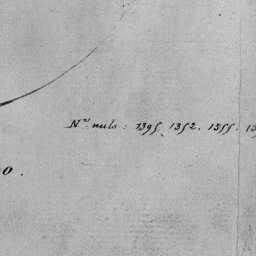 Nos nuls : 1395, 1352. 1355. 13
o.